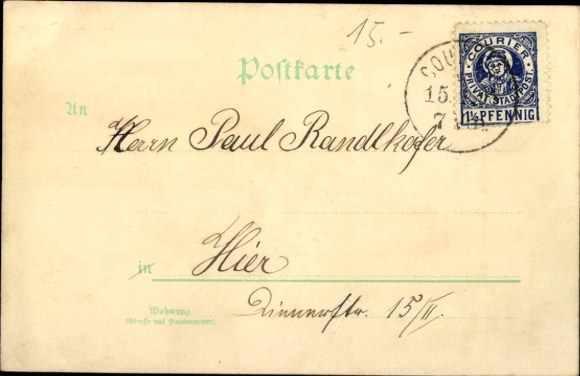 15.-
COURIER
PRIVAT-STADTPOST.
1½ PFENNIG
COU
15.
7
Postkarte
An
Herrn Paul Randlkofer
in Hier
Wohnung
(Straße und Hausnummer)
Dienerstr. 15/II.